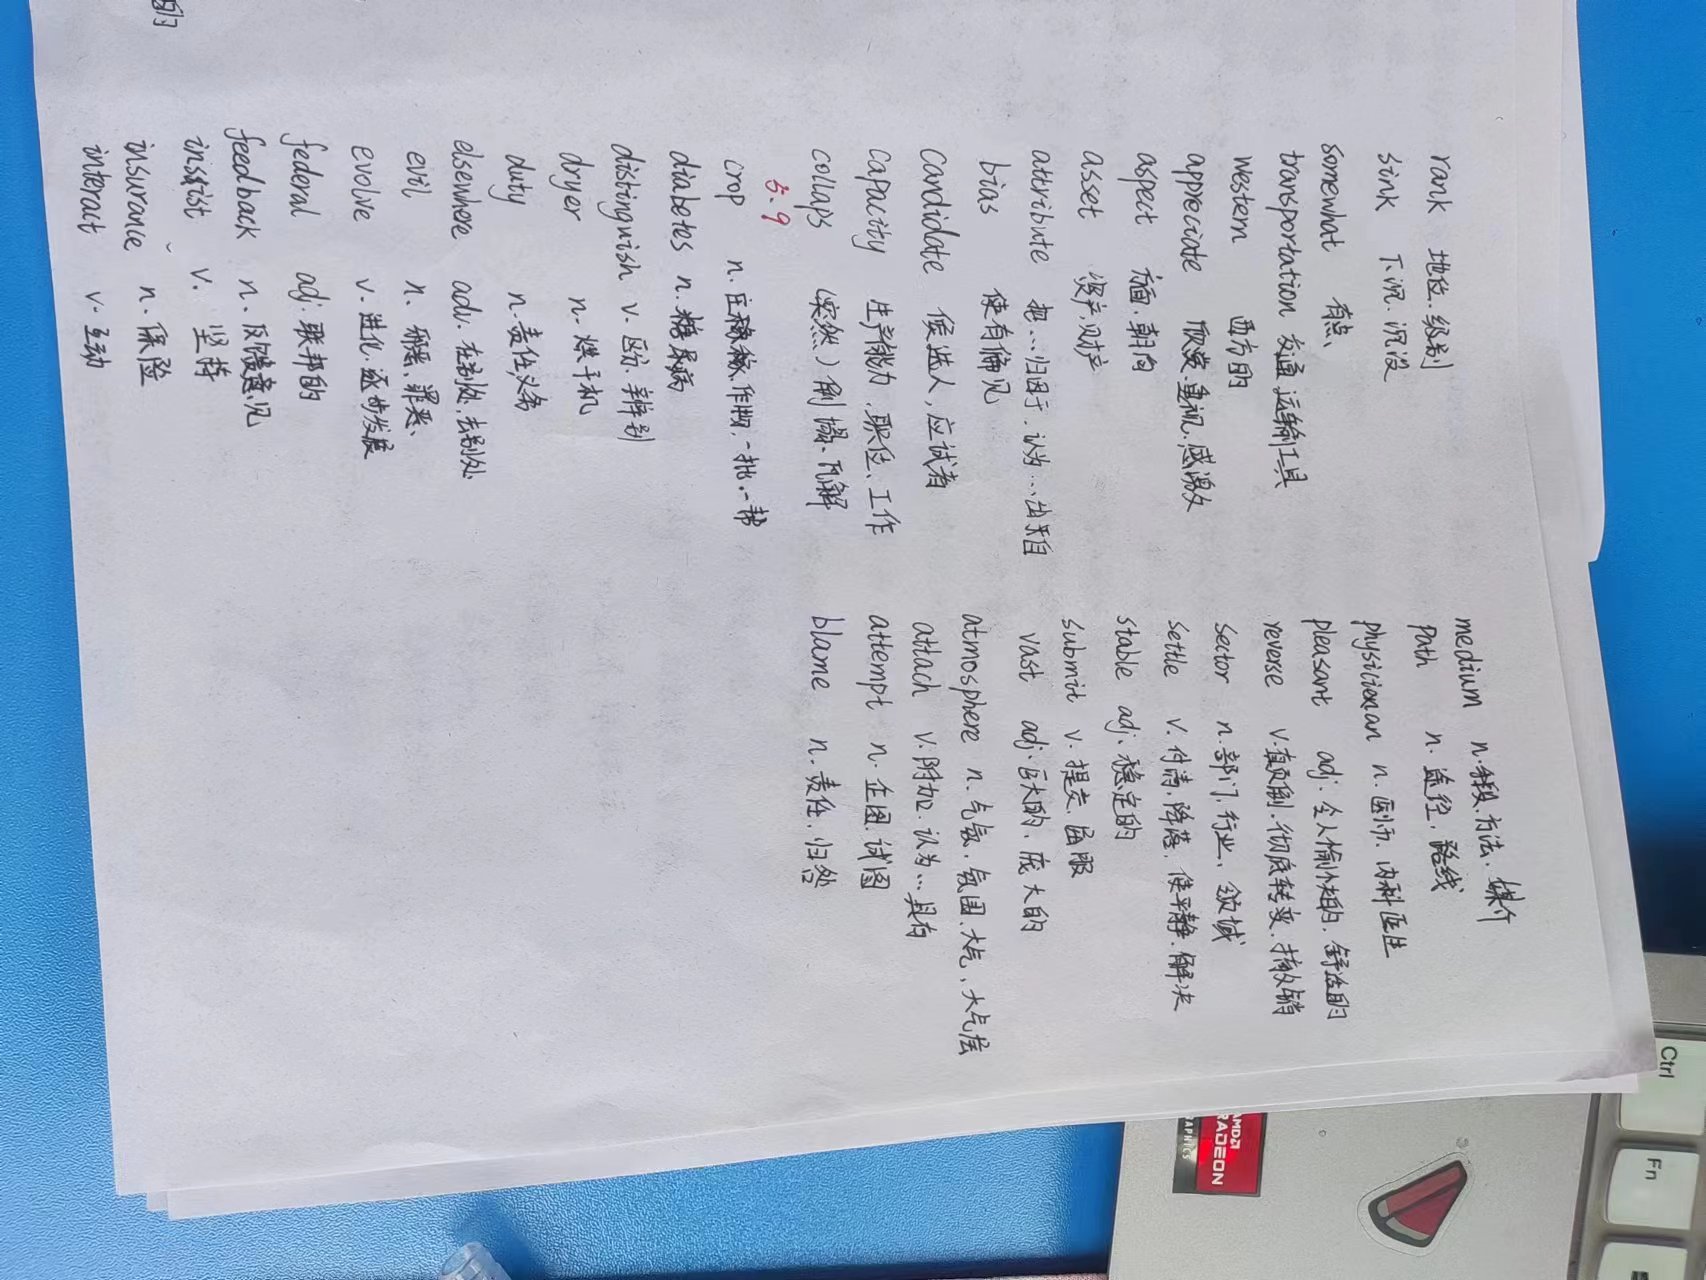 Ctrl
Fn
AMD
RADEON
GRAPHICS
rank 地位、级别
sink 下沉、沉没
somewhat 有点、
transportation 交通、运输工具
western 西方的
appreciate 欣赏、重视、感激
aspect 方面、朝向
asset 资产,财产
attribute 把…归因于、认为…出自
bias 使有偏见
candidate 候选人,应试者
capacity 生产能力、职位、工作
collaps (突然)倒塌、瓦解
5.9
crop n.庄稼、作物,一批、一帮
diabetes n.糖尿病
distinguish v.区分、辨别
dryer n.烘干机
duty n.责任,义务
elsewhere adv.在别处,去别处
evil n.邪恶、罪恶、
evolve v.进化、逐步发展
federal adj.联邦的
feedback n.反馈意见
insist v.坚持
insurance n.保险
interact v.互动
medium n.手段、方法、媒介
path n.途径、路线
physician n.医师、内科医生
pleasant adj.令人愉快的、舒适的
reverse v.颠倒、彻底转变、撤销
sector n.部门,行业、领域
settle v.付清、降落、使平静、解决
stable adj.稳定的
submit v.提交、屈服
vast adj.巨大的、庞大的
atmosphere n.气氛、氛围、大气、大气层
attach v.附加、认为…具有
attempt n.企图、试图
blame n.责任、归咎
的